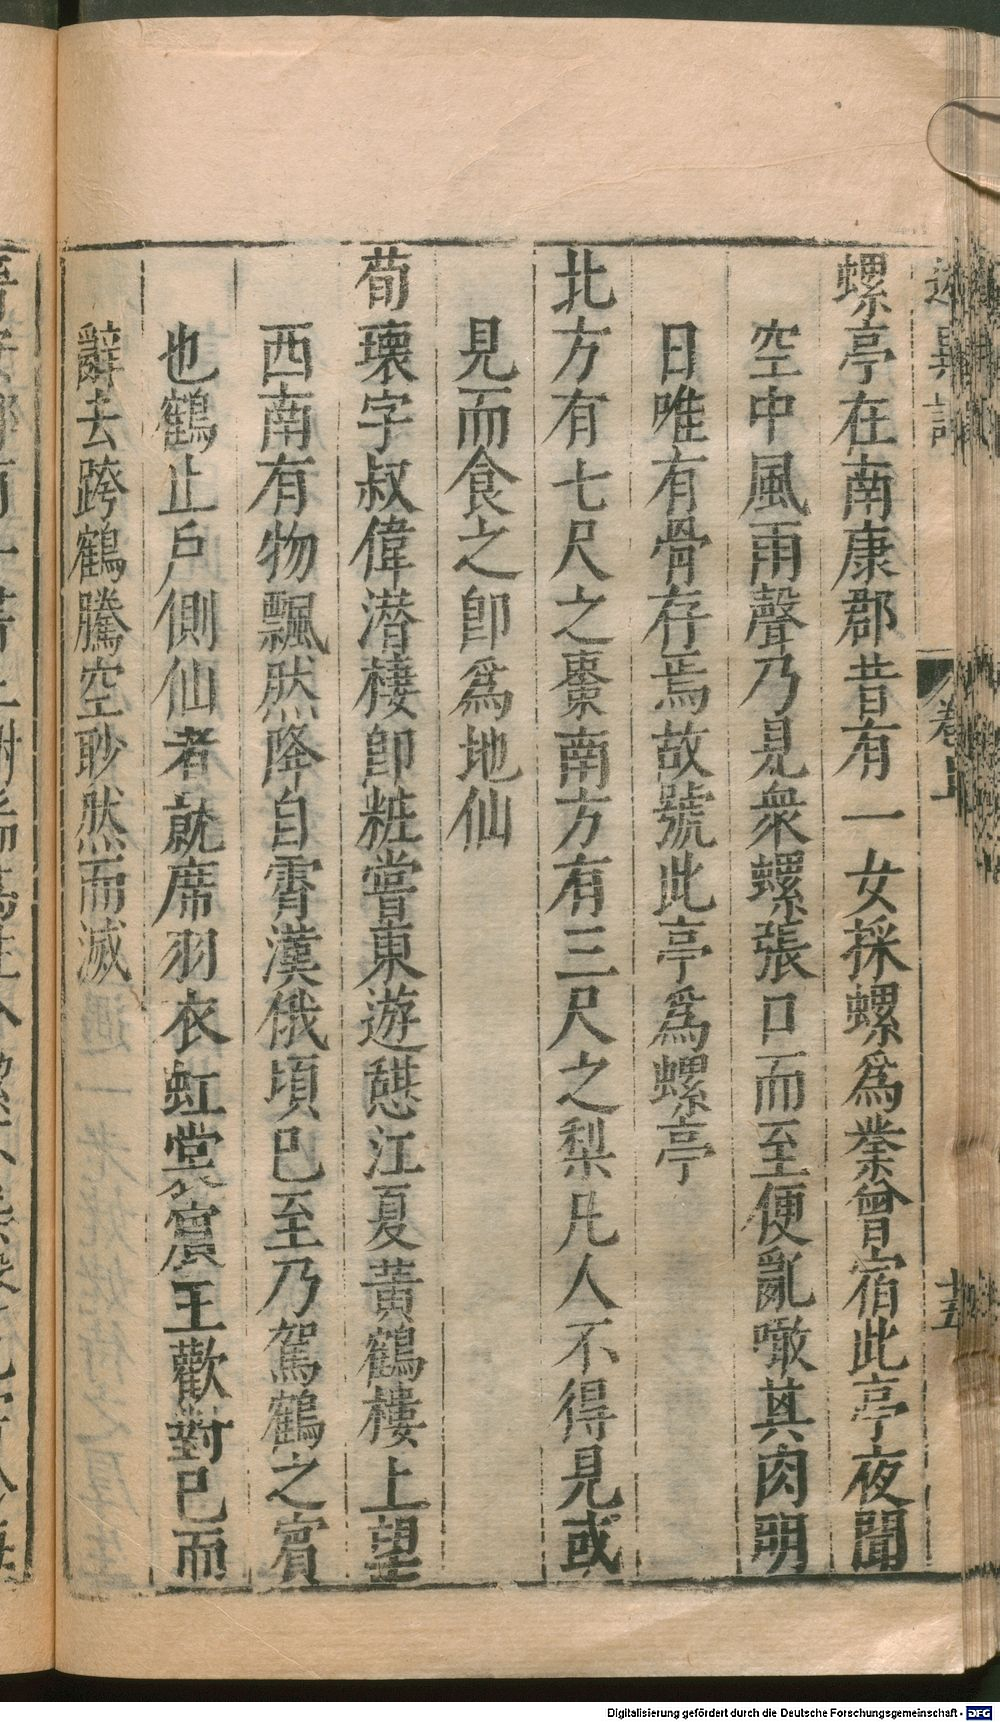 述異記 卷上 十五
螺亭在南康郡昔有一女採螺爲業曾宿此亭夜聞
空中風雨聲乃見衆螺張口而至便亂噉其肉明
日唯有骨存焉故號此亭爲螺亭
北方有七尺之棗南方有三尺之梨凡人不得見或
見而食之卽爲地仙
荀瓌字叔偉潛棲卽粧嘗東遊憇江夏黃鶴樓上望
西南有物飄然降自霄漢俄頃已至乃駕鶴之賓
也鶴止戶側仙者就席羽衣虹裳賓主歡對已而
辭去跨鶴騰空眇然而滅
Digitalisierung gefördert durch die Deutsche Forschungsgemeinschaft - DFG